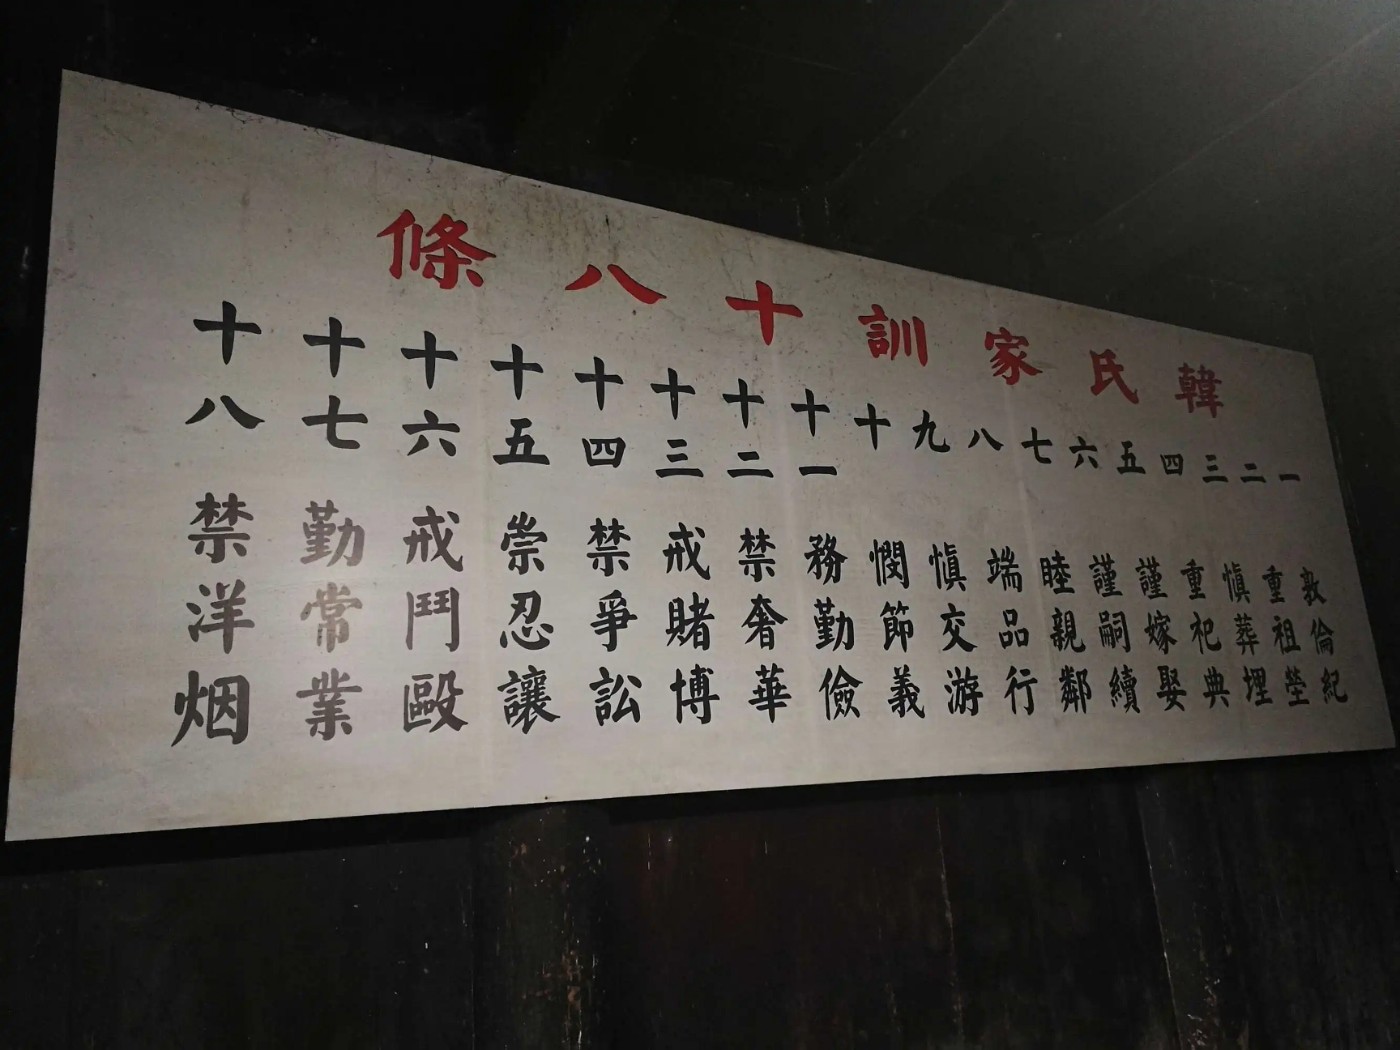 韓氏家訓十八條
一 敦倫紀
二 重祖塋
三 慎葬埋
四 重祀典
五 謹嫁娶
六 謹嗣續
七 睦親鄰
八 端品行
九 慎交游
十 憫節義
十一 務勤儉
十二 禁奢華
十三 戒賭博
十四 禁爭訟
十五 崇忍讓
十六 戒鬥毆
十七 勤常業
十八 禁洋烟